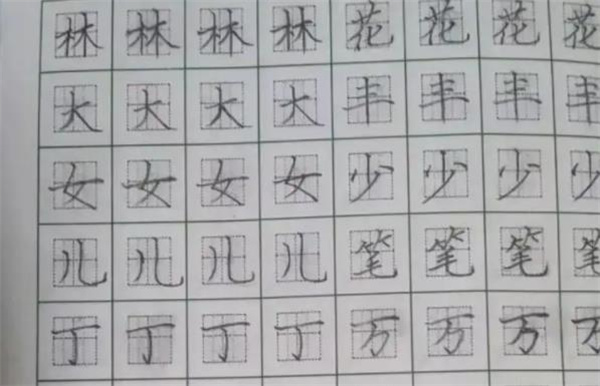 林 林 林 林 花 花 花 花
大 大 大 大 丰 丰 丰 丰
女 女 女 女 少 少 少 少
儿 儿 儿 儿 笔 笔 笔 笔
丁 丁 丁 丁 万 万 万 万